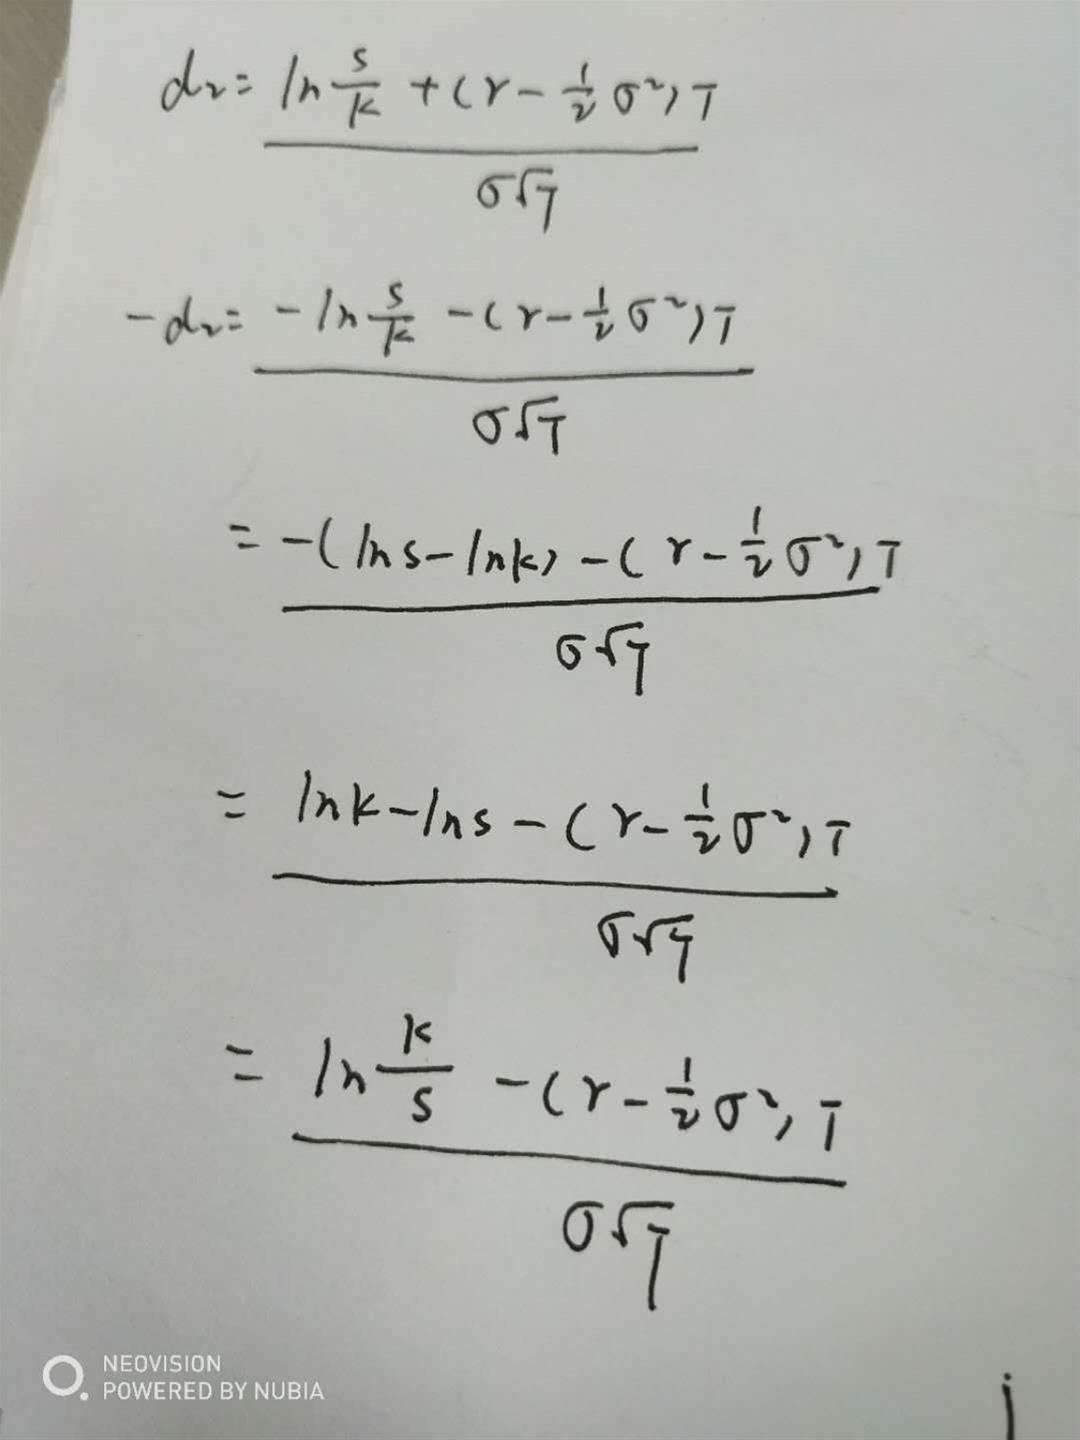 d₂ = (ln S/K + (r - ½σ²)T) / (σ√T)
-d₂ = (-ln S/K - (r - ½σ²)T) / (σ√T)
= (-(ln S - ln K) - (r - ½σ²)T) / (σ√T)
= (ln K - ln S - (r - ½σ²)T) / (σ√T)
= (ln K/S - (r - ½σ²)T) / (σ√T)
NEOVISION
POWERED BY NUBIA